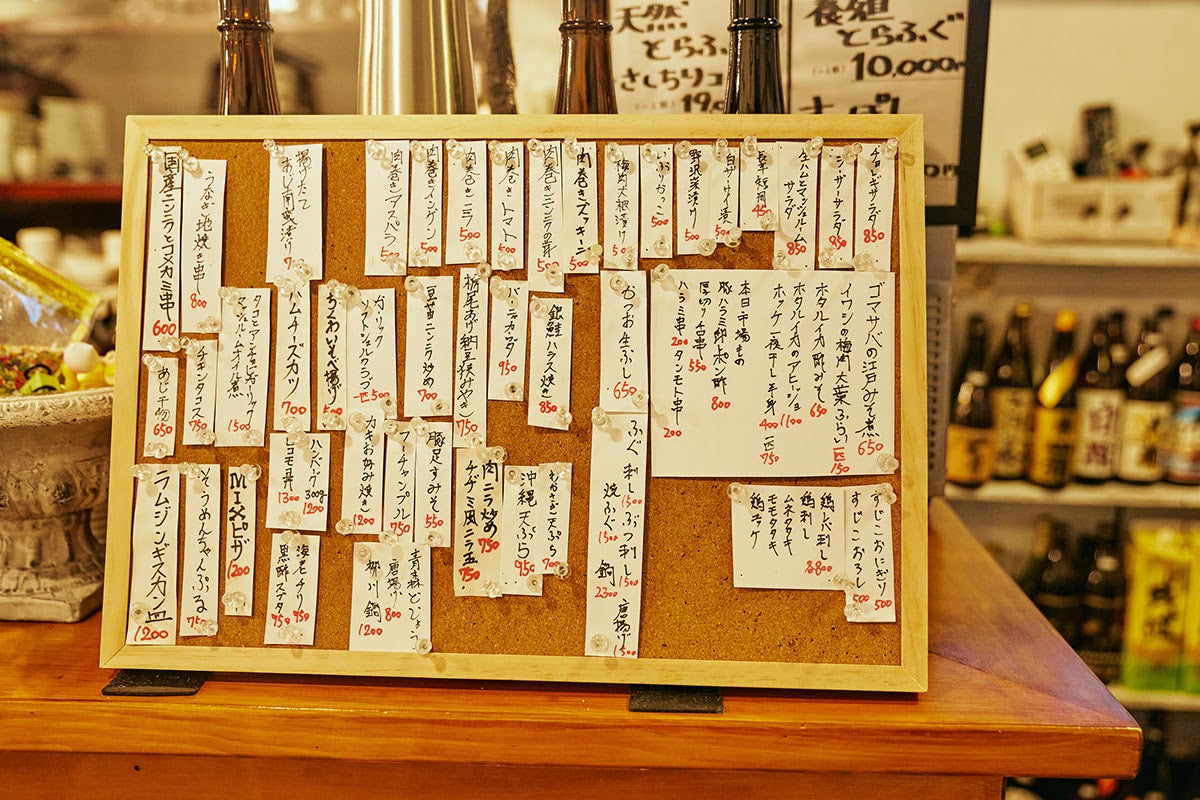 天然
とらふぐ
さしちりコ
養殖
とらふぐ
10,000円
チョレギサラダ 850
シーザーサラダ 850
生ハムとマッシュルーム
サラダ 850
長芋短冊
白サイ漬 500
野沢菜漬け 500
ぶりかっこ 500
梅肉大根漬け 500
肉巻きズッキーニ 500
肉巻きニンニクの芽 500
肉巻きトマト 500
肉巻きニラ 500
肉巻きインゲン 500
肉巻きアスパラ 500
揚げたて
あじ南蛮漬け
うなぎ地焼き串 800
国産ニンニクとコメカミ串 600
ゴマサバの江戸みそ煮 650
イワシの梅肉大葉ふらい 一匹 150
ホタルイカ酢みそ 650
ホタルイカのアヒージョ 1100
ホッケ一夜干し半身 400 一匹 750
本日干場もの
豚ハラミ卸しポン酢 800
厚切り舌串 550
ハラミ串 200 タンモト串 200
かつお生ぶし 650
銀鮭ハラス焼き 850
バーニャカウダ 950
栃尾あげ納豆挟みやき 750
豆苗ニンニク炒め 700
ガーリック
ソフトシェルクラブ 一匹 500
ちくわいそべ揚げ 500
ハムチーズカツ 700
タコとアンチョビガーリック
マッシュルームオイル煮 1500
チキンタコス 750
あじ干物 650
すじこおにぎり 500
すじこおろし 500
鶏レバ刺し
鶏刺し
ムネタタキ
モモタタキ
各800
ふぐ刺し 1500 ぶつ刺し 1500 唐揚げ 1500
焼ふぐ 1500 鍋 2300
むかご天ぷら 700
沖縄天ぷら 950
肉ニラ炒め 750
チヂミ風ニラ玉 750
豚足すみそ 550
フーチャンプル 750
カキお好み焼き 1200
ハンバーグ 300g 1200
ロコモ丼 1300
MIXピザ 1200
そうめんちゃんぷる 750
ラムジンギスカン皿 1200
青森どじょう
唐揚げ 800
柳川鍋 1200
海老チリ 950
黒酢スブタ 950